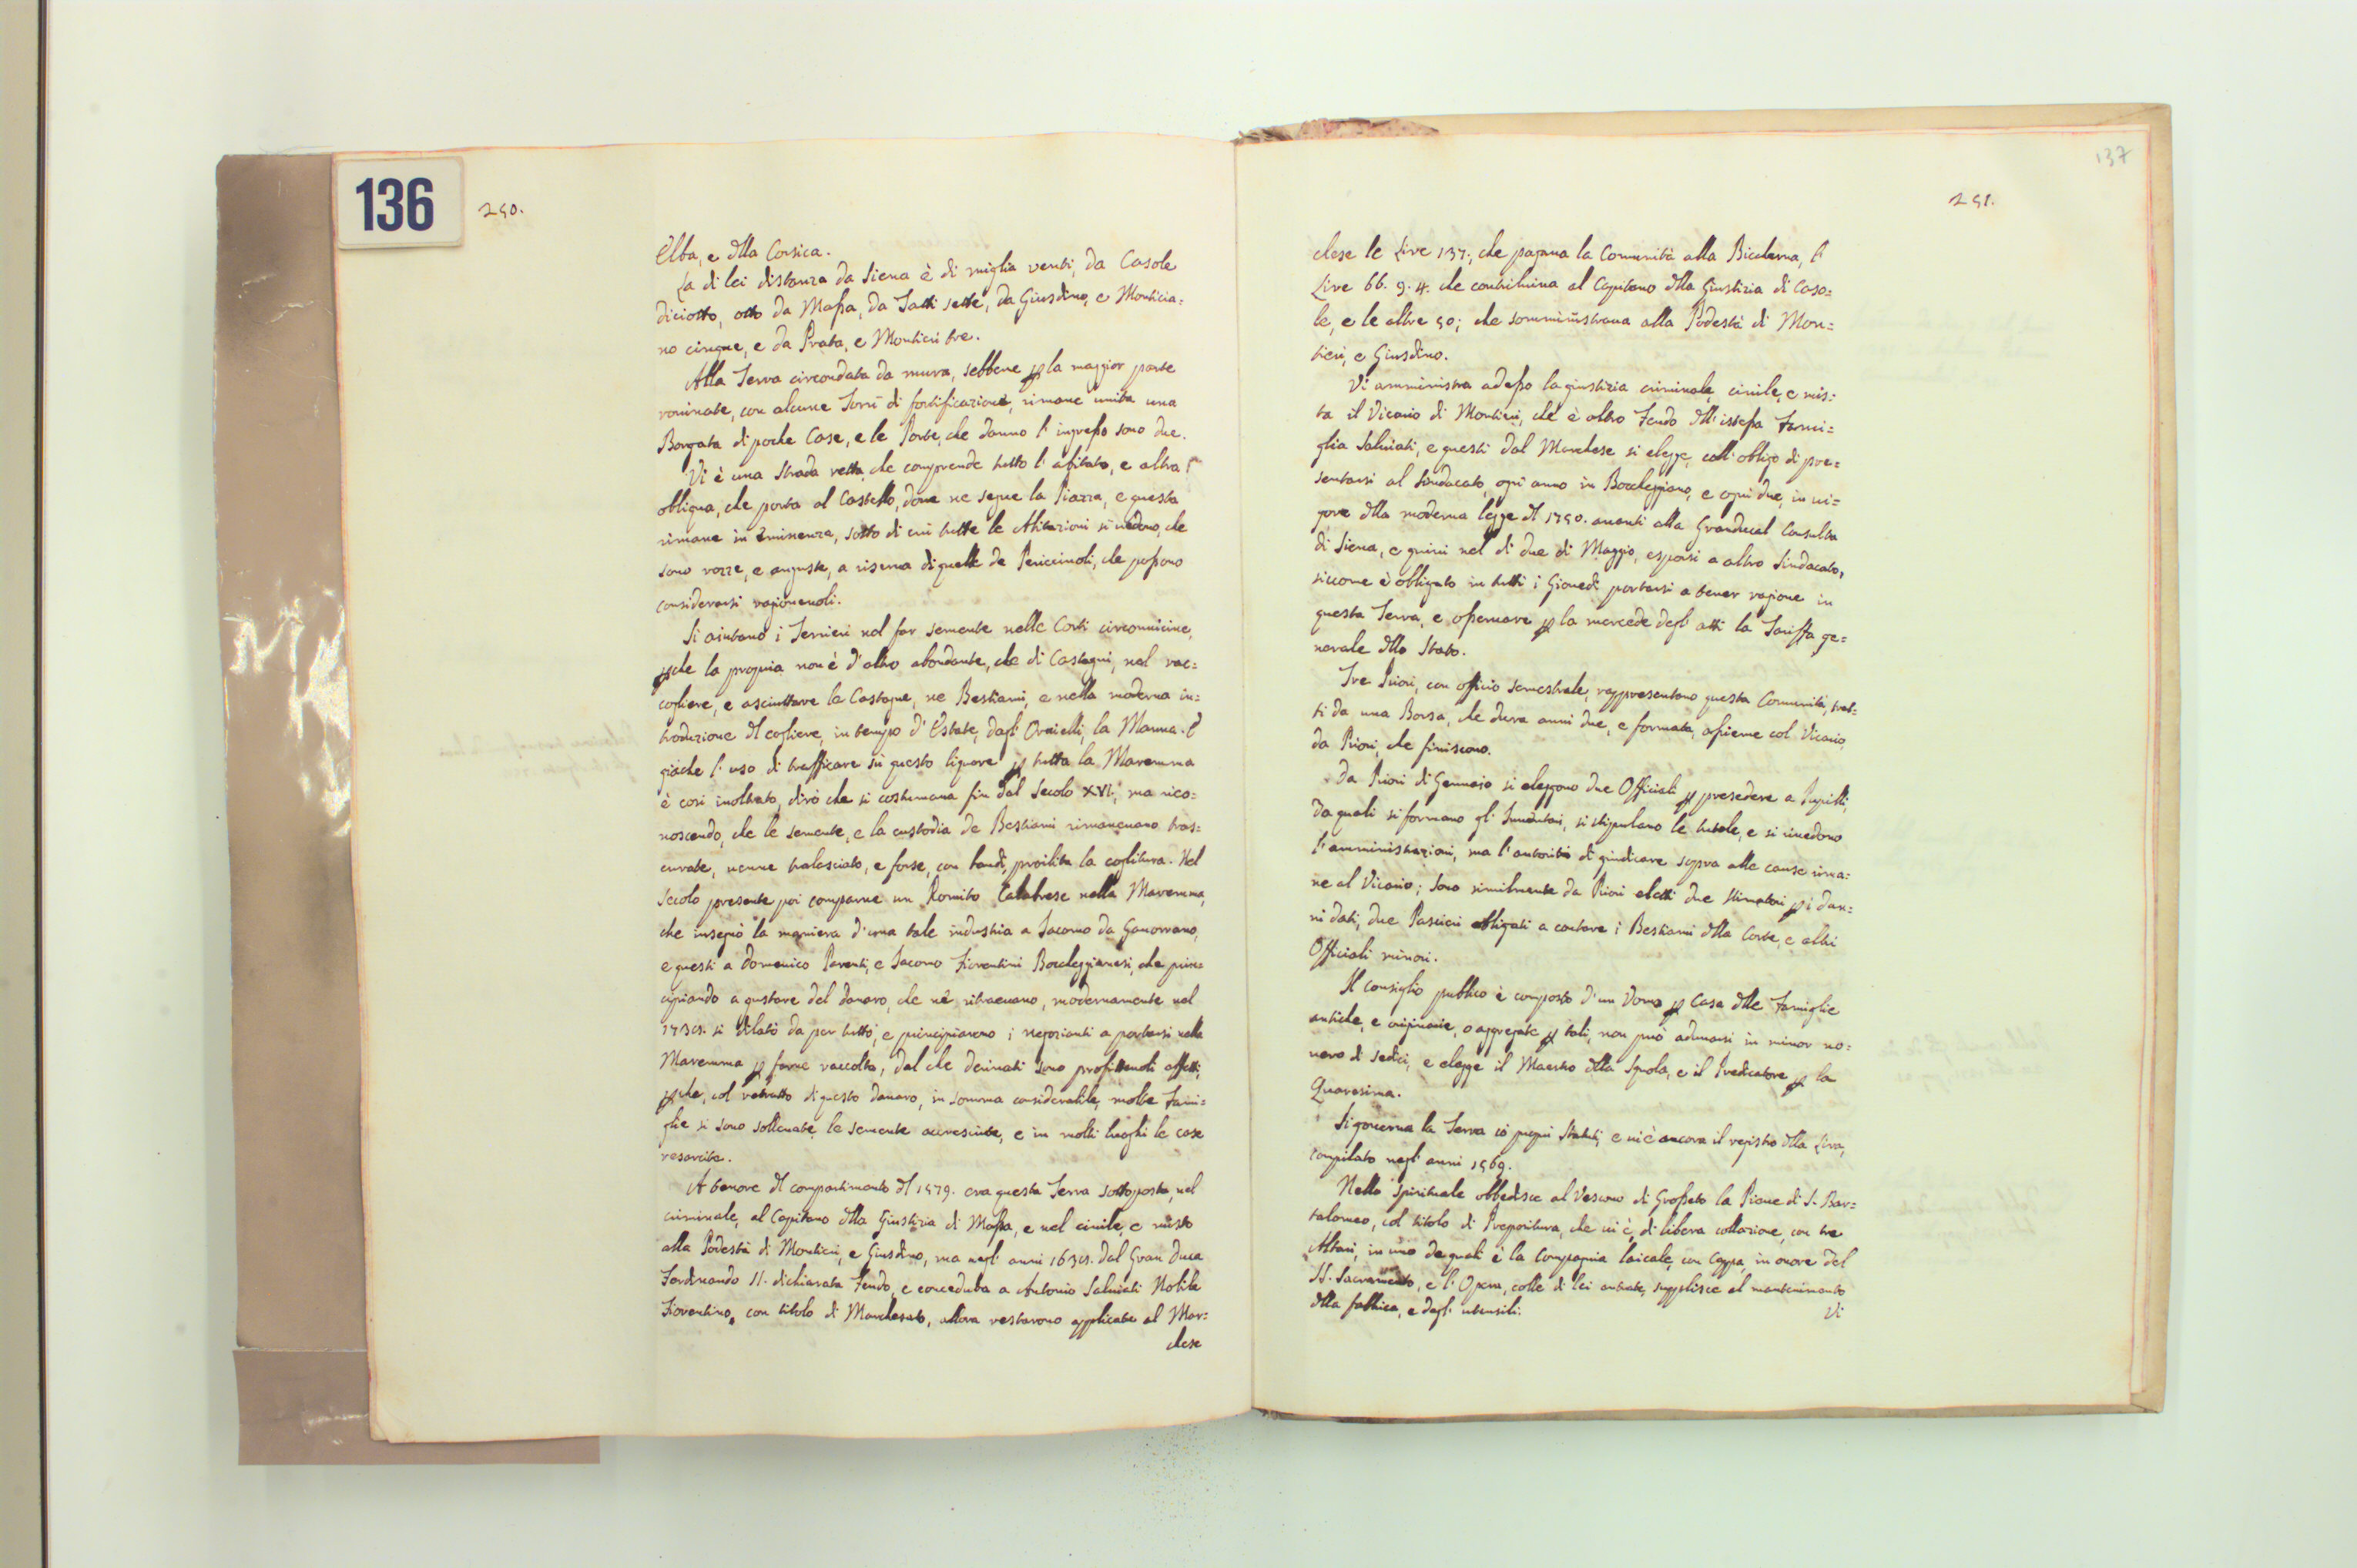 136
250.
Elba, e dlla Corsica.
La di lei distanza da Siena è di miglia venti, da Casole
diciotto, otto da Massa, da Tatti sette, da Giusdino, e Monticia=
no cinque, e da Prata, e Montieri tre.
Alla Terra circondata da mura, sebbene p la maggior parte
rovinate, con alcune Torri di fortificazione, rimane unita una
Borgata di poche Case, e le Porte, che danno l' ingresso sono due.
Vi è una strada retta, che comprende tutto l' abitato, e altra
obliqua, che porta al Castello, dove ne segue la Piazza, e questa
rimane in Eminenza, sotto di cui tutte le Abitazioni si vedono, che
sono rozze, e anguste, a riserva di quelle de Periccioli, che possono
considerarsi ragionevoli.
Si aiutano i Terrieri nel far semente nelle Corti circonvicine,
pche la propria non è d' altro abondante, che di Castagni, nel rac=
cogliere, e asciuttare le Castagne, ne Bestiami, e nella moderna in=
troduzione dl cogliere, in tempo d' Estate, dagl' Ornielli, la Manna. E
giache l' uso di trafficare sù questo liquore p tutta la Maremma
è così inoltrato, dirò che si costumava fin dal Secolo XVI; ma rico=
noscendo, che le semente, e la custodia de Bestiami rimanevano tras=
curate, venne tralasciato, e forse, con bandi, proibita la coglitura. Nel
secolo presente poi comparve un Romito Calabrese nella Maremma,
che insegnò la maniera d' una tale industria a Jacomo da Gavorrano,
e questi a Domenico Parenti, e Jacomo Fiorentini Boccheggianesi, che prin=
cipiando a gustare del danaro, che nè ritraevano, modernamente nel
si dilatò da per tutto, e principiarono i negozianti a portarsi nella
Maremma p farne raccolta, dal che derivati sono profittevoli effetti,
pche, col retratto di questo danaro, in somma considerabile, molte Fami=
glie si sono sollevate, le semente accresciute, e in molti luoghi le case
resarcite.
A tenore dl compartimento dl 1579. era questa Terra sottoposta, nel
criminale, al Capitano dlla Giustizia di Massa, e nel civile, e misto
alla Podestà di Montieri, e Giusdino, ma negl' anni dal Gran Duca
Ferdinando II. dichiarata Feudo, e conceduta a Antonio Salviati Nobile
Fiorentino, con titolo di Marchesato, allora restarono applicate al Mar=
chese
137
251.
chese le Lire 137., che pagava la Comunità alla Biccherna, l'
Lire 66. 9. 4. che contribuiva al Capitano dlla Giustizia di Caso=
le, e le altre 50; che somministrava alla Podestà di Mon=
tieri, e Giusdino.
Vi amministra adesso la giustizia criminale, civile, e mis=
ta il Vicario di Montieri, che è altro Feudo dll' istessa Fami=
glia Salviati, e questi dal Marchese si elegge, coll' obligo di pre=
sentarsi al Sindacato, ogni anno in Boccheggiano, e ogni due, in vi=
gore dlla moderna legge dl 1750. avanti alla Granducal Consulta
di Siena, e quivi nel dì due di Maggio, esporsi a altro Sindacato,
siccome è obligato in tutti i Giovedì portarsi a tener ragione in
questa Terra, e osservare p la mercede degl' atti la Tariffa ge=
nerale dllo Stato.
Tre Priori, con officio semestrale, rappresentano questa Comunità, trat=
ti da una Borsa, che dura anni due, e formata, assieme col Vicario,
da Priori, che finiscono.
Da Priori di Gennaio si eleggono due Officiali p presedere a Pupilli,
da quali si formano gl' Inventari, si stipulano le tutele, e si rivedono
l' amministrazioni, ma l' autorità di giudicare sopra alle cause rima=
ne al Vicario; Sono similmente da Priori eletti due Stimatori p i dan=
ni dati, due Pascieri obligati a contare i Bestiami dlla Corte, e altri
Officiali minori.
Il consiglio publico è composto d' un Uomo p Casa dlle Famiglie
antiche, e originarie, o aggregate p tali, non può adunarsi in minor nu=
mero di sedici, e elegge il Maestro dlla Squola, e il Predicatore p la
Quaresima.
Si governa la Terra cò propri Statuti, e vi è ancora il registro dlla Lira,
compilato negl' anni 1569.
Nello spirituale obbedisce al Vescovo di Grosseto la Pieve di S. Bar=
talomeo, col titolo di Prepositura, che vi è, di libera collazione, con tre
Altari, in uno de quali è la Compagnia laicale, con Cappa, in onore del
SS. Sacramento, e l' Opera, colle di lei entrate, supplisce al mantenimento
dlla fabbrica, e degl' utensili.
Vi